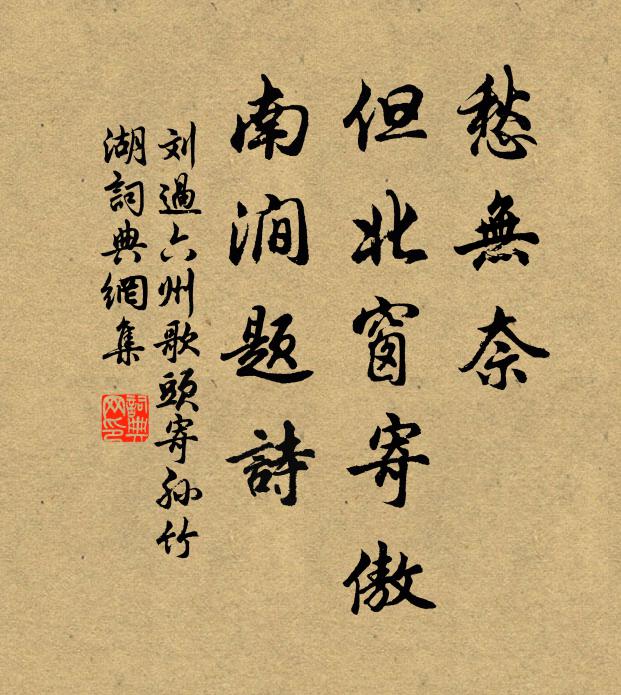 愁無奈
但北窗寄傲
南澗题詩
刘過六州歌頭寄孙竹
湖詞典網集
詞典网印